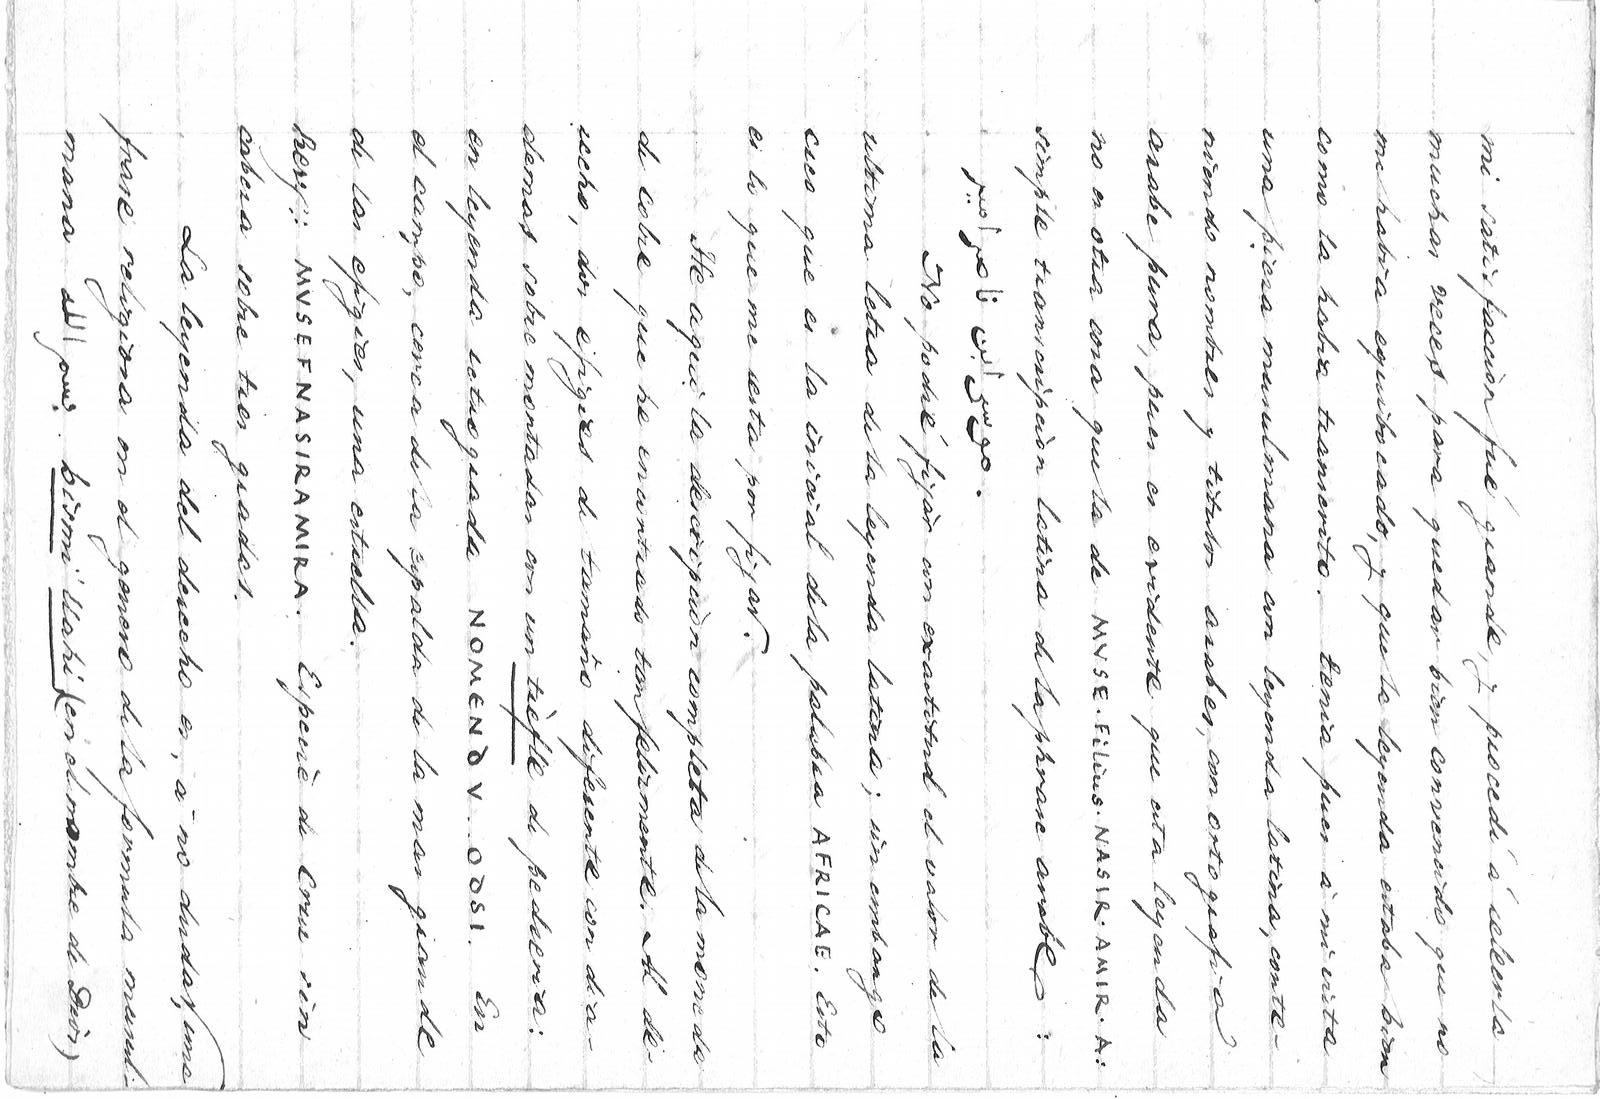 mi satisfacción fué grande, y procedí á releerla
muchas veces para quedar bien convencido que no
me habia equivocado, y que la leyenda estaba bien
como la habia transcrito. Tenia pues á mi vista
una pieza musulmana con leyenda latina, conte-
niendo nombres y titulos arabes, con ortografia
arabe pura, pues es evidente que esta leyenda
no es otra cosa que la de MVSE. FILIUS. NASIR. AMIR. A:
simple transcripción latina de la phrase arabe:
موسى ابن نا صر امير
No podré fijar con exactitud el valor de la
ultima letra de la leyenda latina; sin embargo
creo que es la inicial de la palabra AFRICAE. Esto
es lo que me esta por fijar.
He aqui la descripción completa de la moneda
de cobre que he encontrado tan felizmente. Al de-
recho, dos efigies de tamaño diferente con dia-
demas sobremontadas con un trèfle de pedreria:
en leyenda retrograda NOMENDV..ODSI. En
el campo, cerca de la espalda de la mas grande
de las efigies, una estrella.
Rev/: MVSEFNASIRAMIRA. Especie de Cruz sin
cabeza sobre tres gradas.
La leyenda del derecho es, á no dudar, una
frase religiosa en el genero de la formula musul-
mana بسم الله. bismi'llahi (en el nombre de Dios)